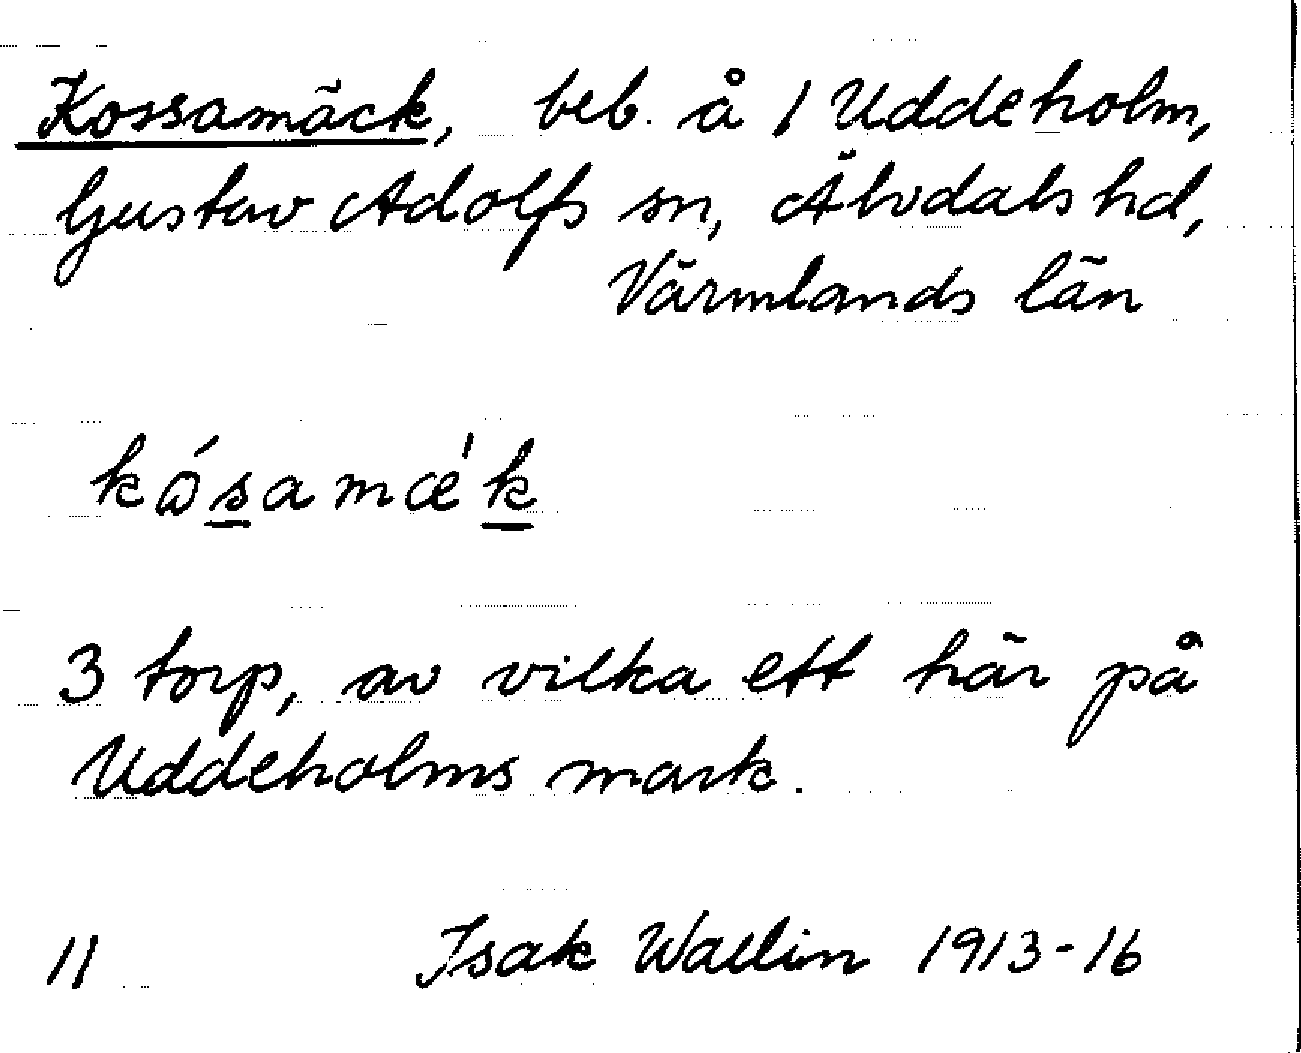 Kossamäck, beb. å 1 Uddeholm,
Gustav Adolfs sn, Älvdals hd,
Värmlands län
kɷ́samæ'k
3 torp, av vilka ett här på
Uddeholms mark.
11 Isak Wallin 1913-16